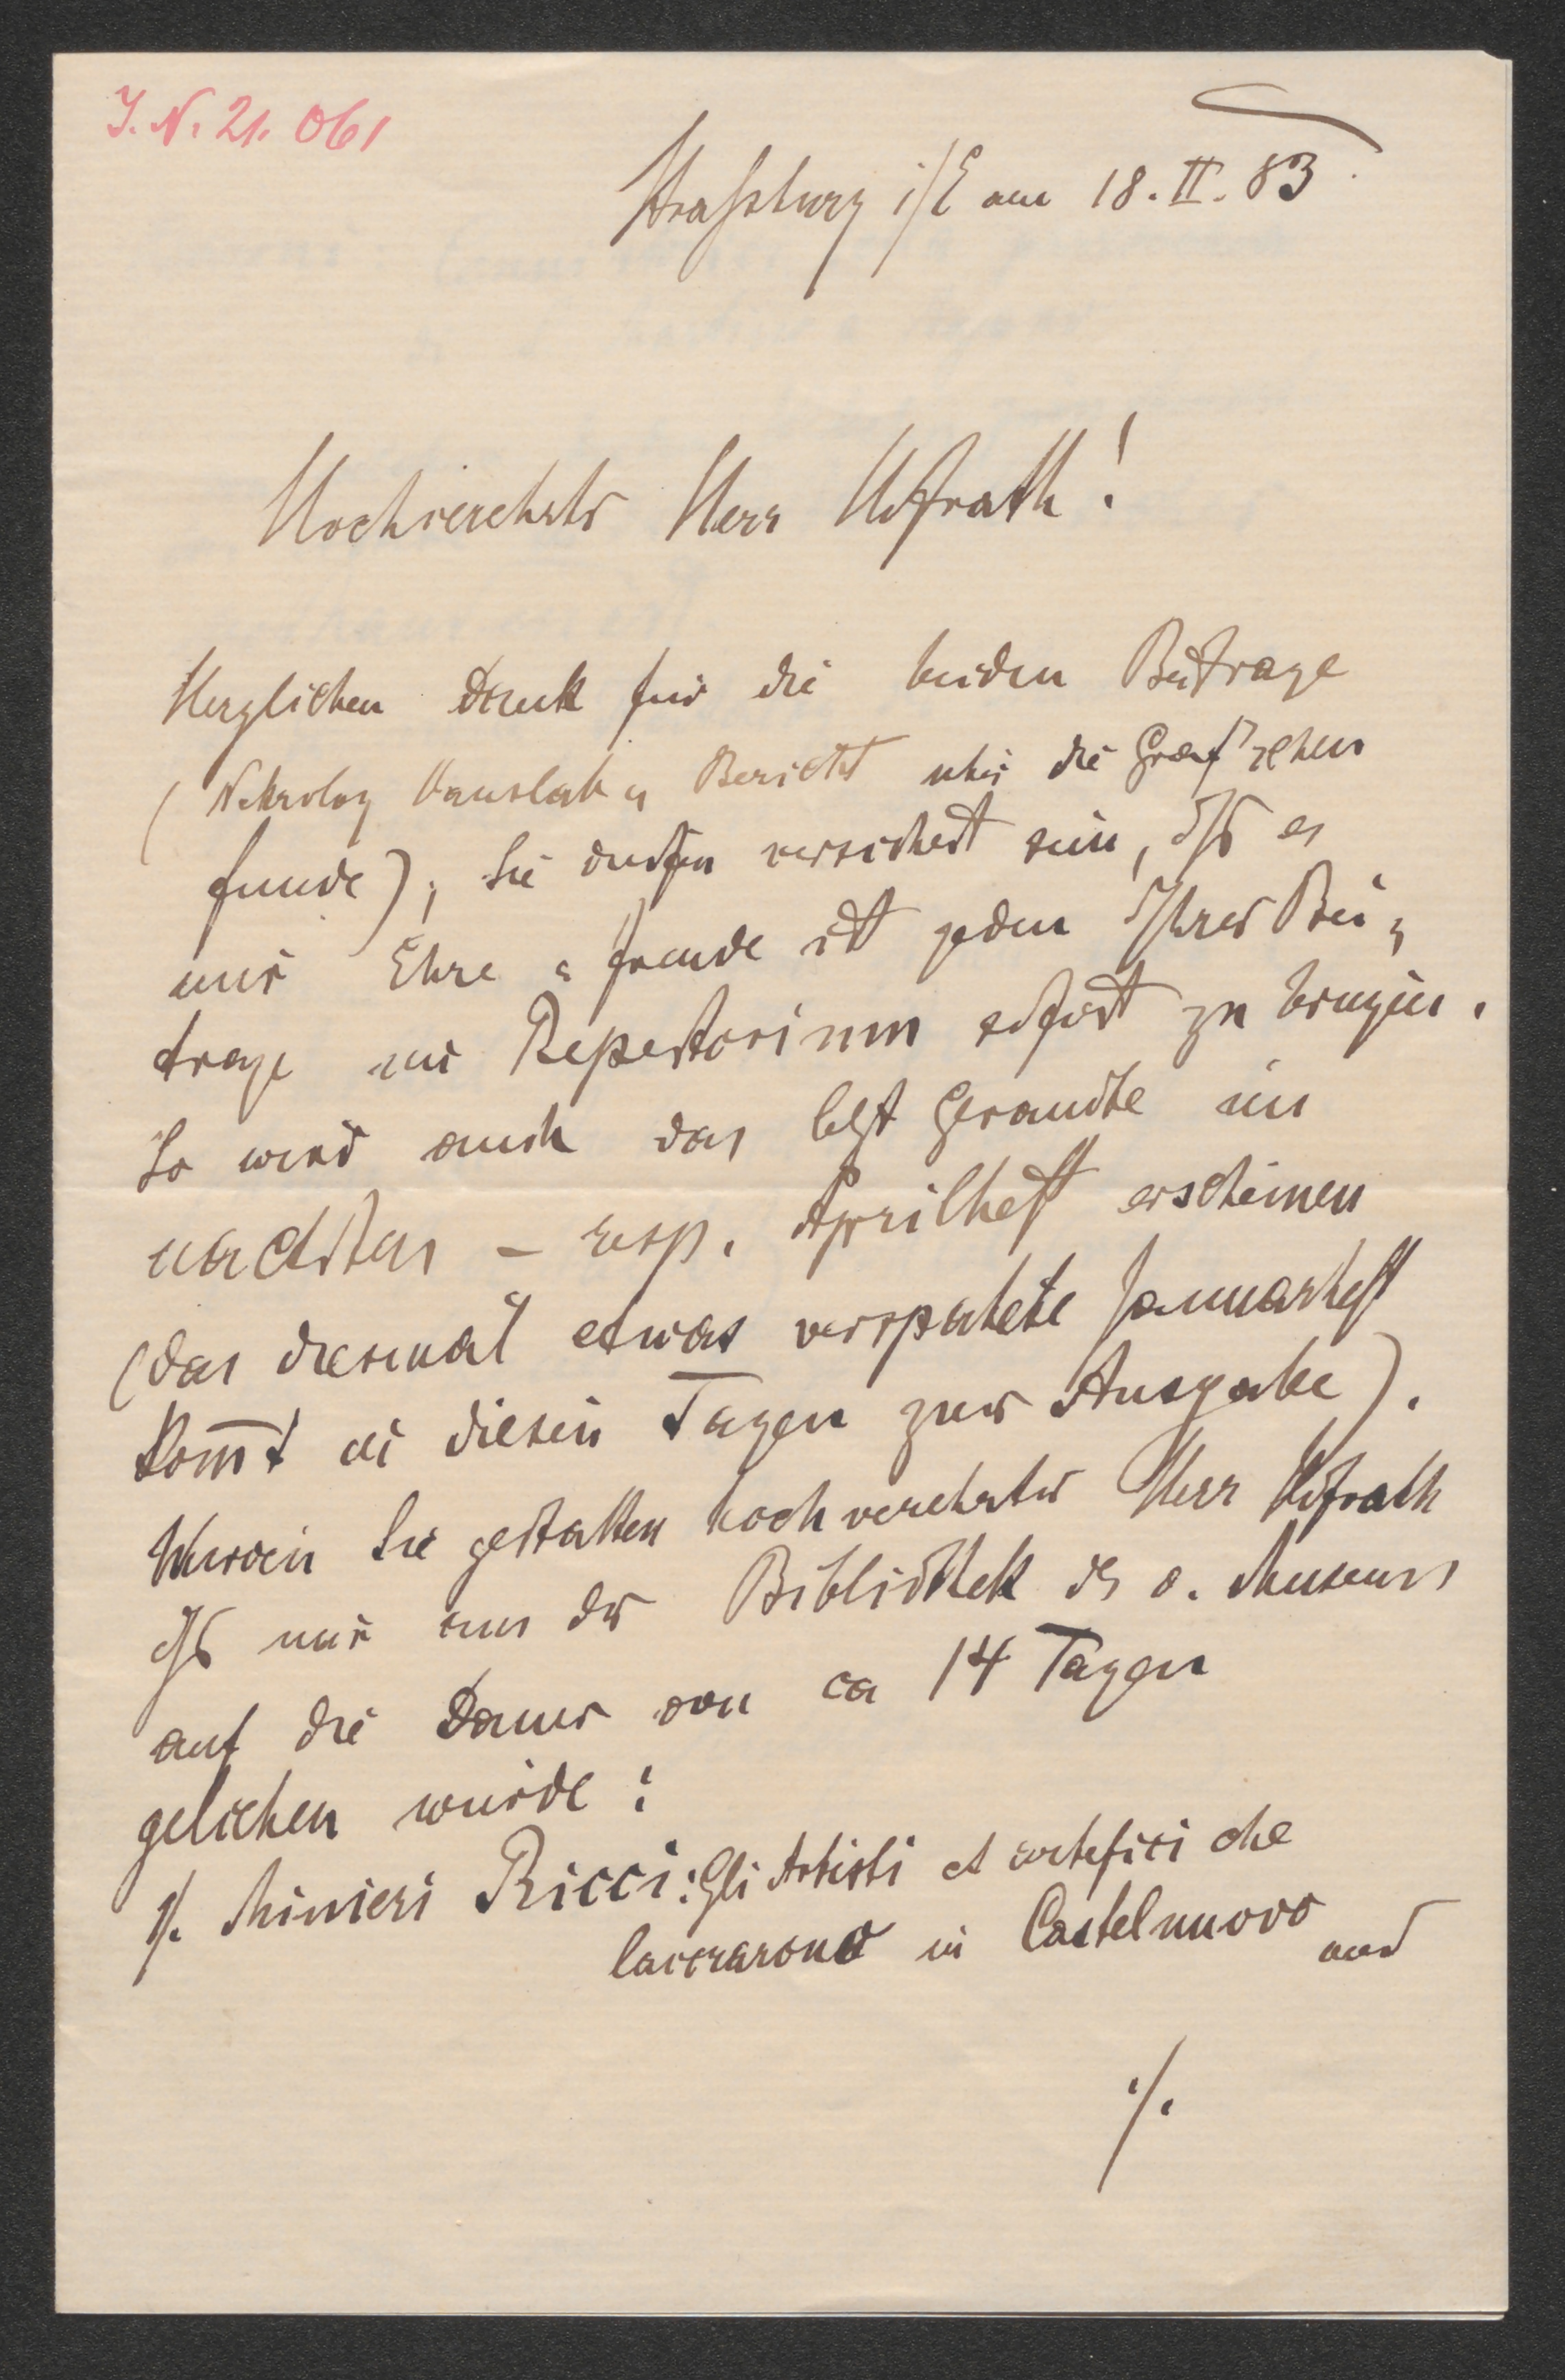 I. N. 21. 061
Straßburg i/E am 18. II. 83.
Hochverehrter Herr Hofrath!
Herzlichen Dank für die beiden Beitrage
(Nekrolog Hauslab u Bericht über die Graf'schen
funde); Sie durfen versichert sein, dß es
mir Ehre u freude ist jeden Ihrer Bei-
trage im Repertorium sofort zu bringen.
So wird auch das letzt Gesandte im
nachsten – resp. Aprilheft erscheinen
(das diesmal etwas verspatete Januarheft
kom̅t in diesen Tagen zur Ausgabe).
Wurden Sie gestatten hochverehrter Herr Hofrath
dß mir aus der Bibliothek ds o. Museums
auf die Dauer von ca 14 Tagen
geliehen wurde:
1/. Minieri Ricci: Gli Artisti et artefici che
lavorarono in Castelnuovo und
./.